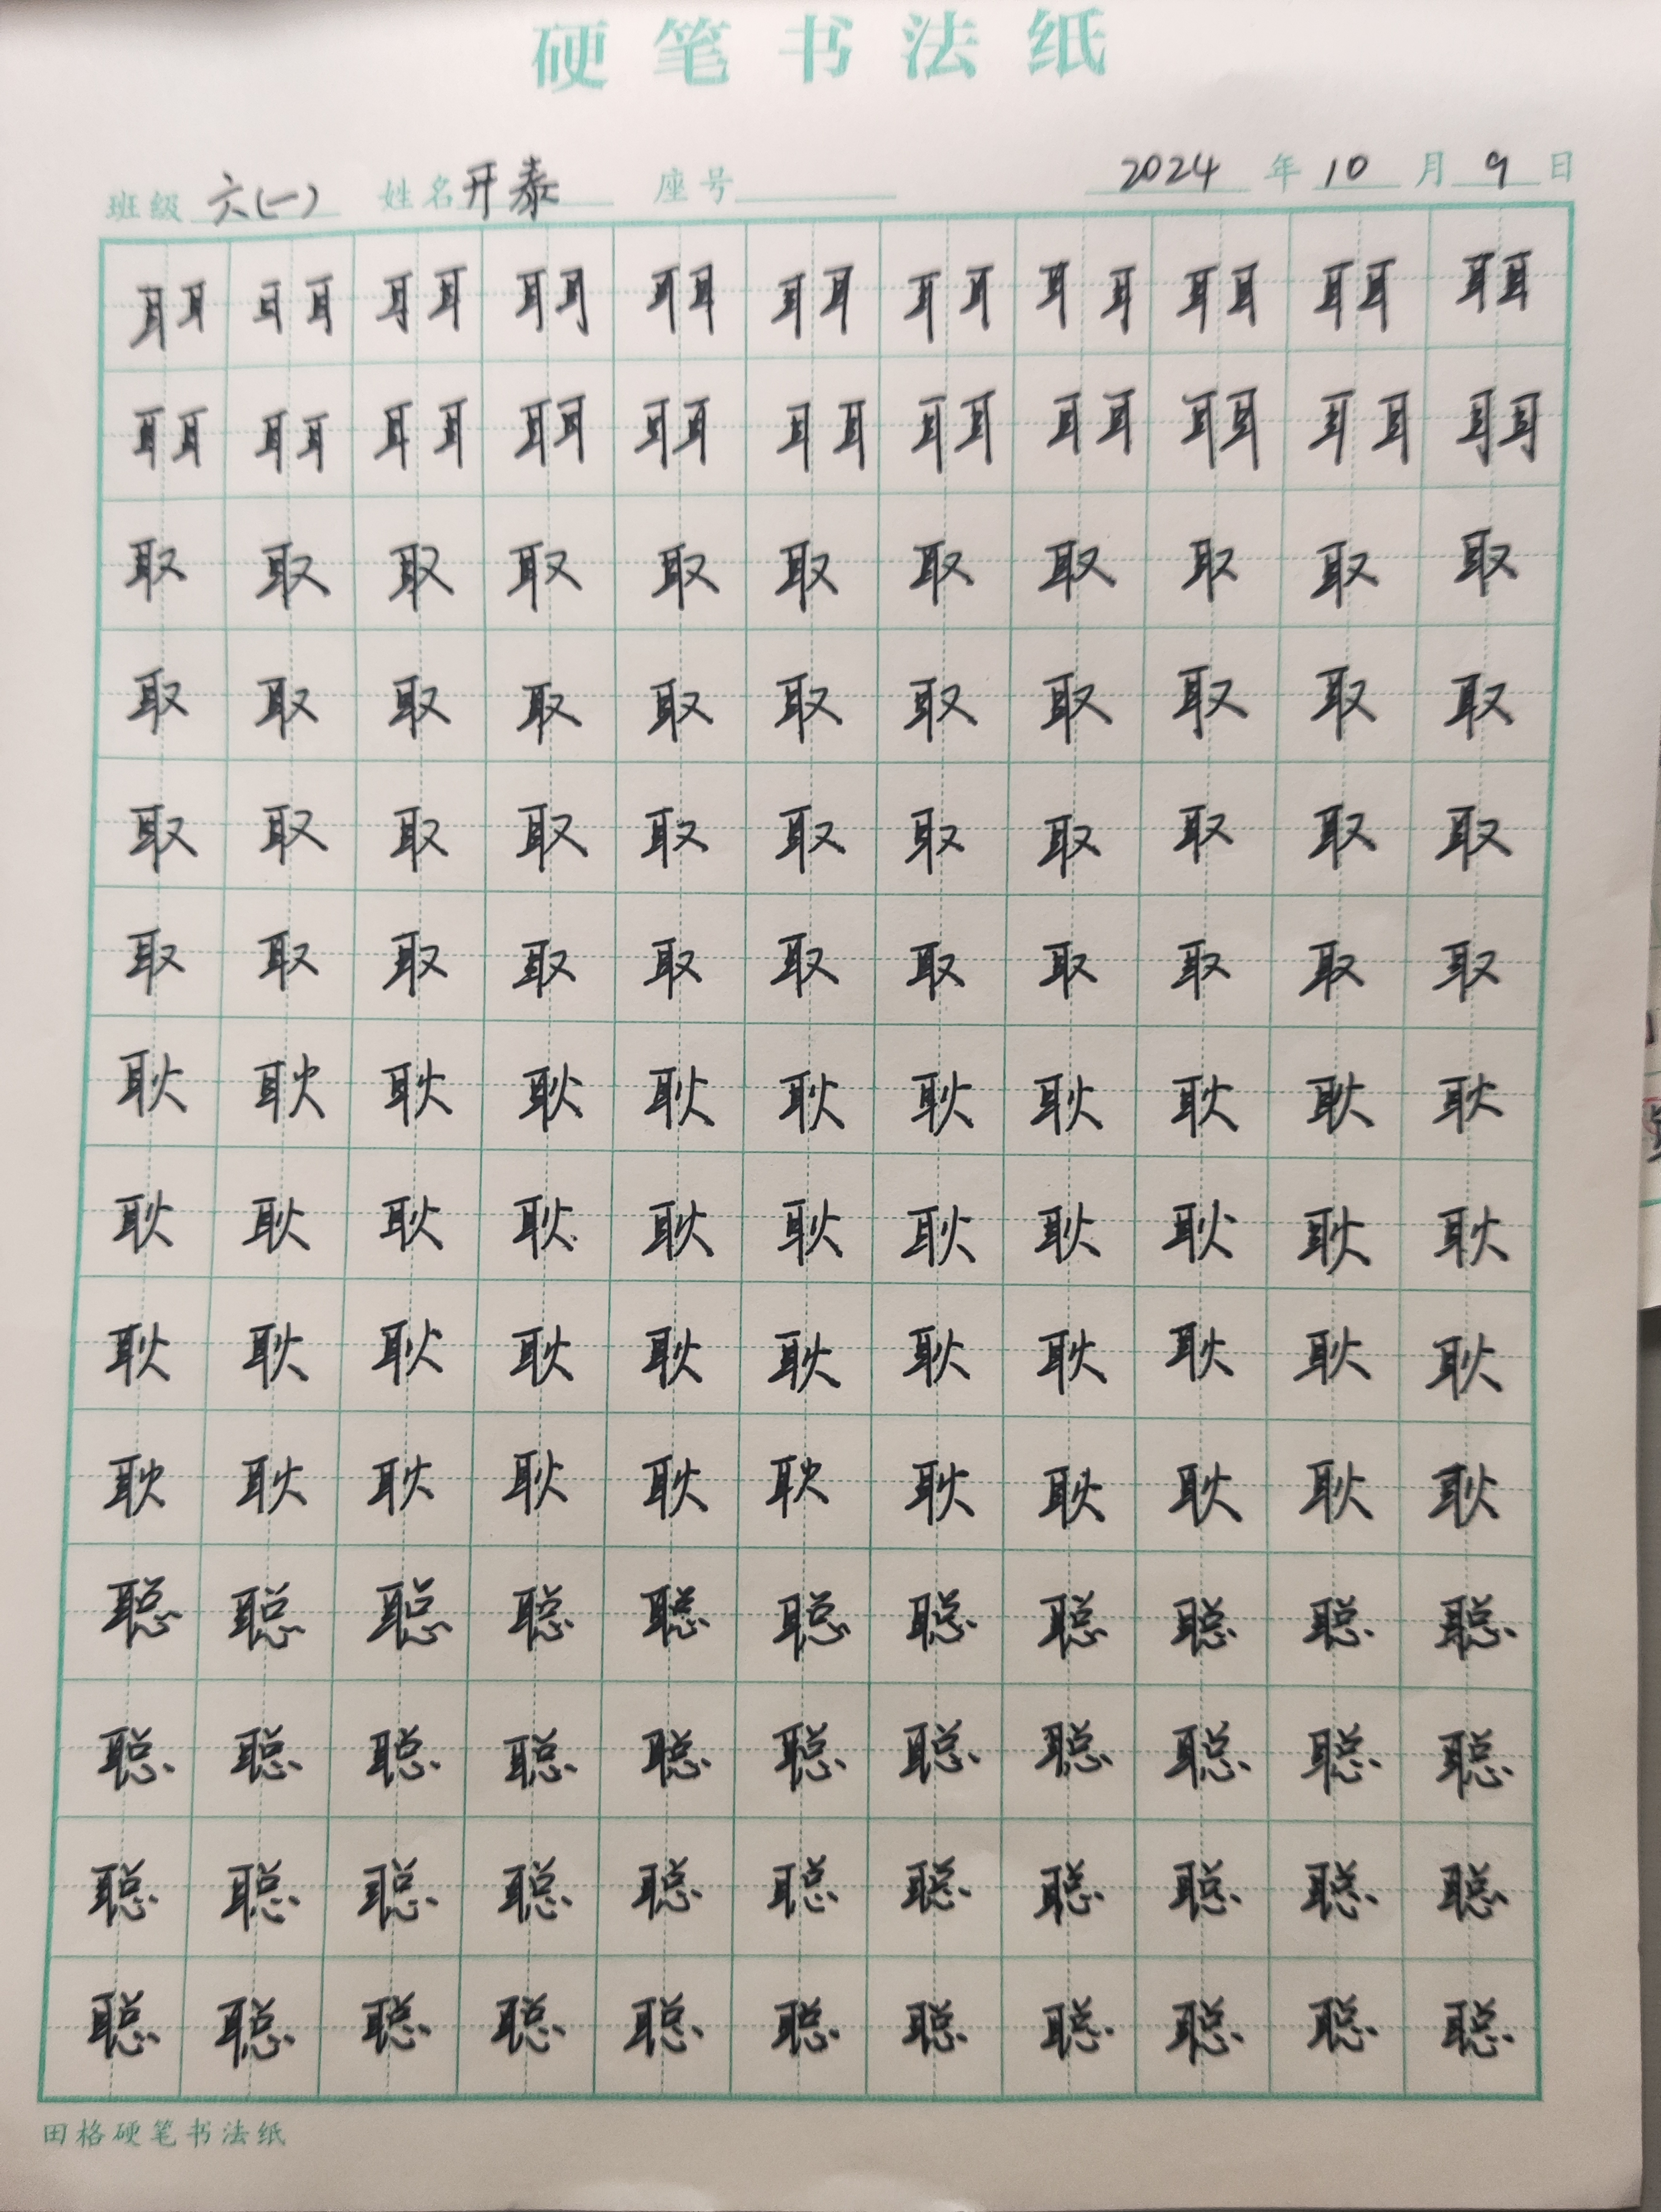 硬笔书法纸
班级 六(一) 姓名 开泰 座号 2024 年 10 月 9 日
耳耳 耳耳 耳耳 耳耳 耳耳 耳耳 耳耳 耳耳 耳耳 耳耳 耳耳
耳耳 耳耳 耳耳 耳耳 耳耳 耳耳 耳耳 耳耳 耳耳 耳耳 耳耳
取 取 取 取 取 取 取 取 取 取 取
取 取 取 取 取 取 取 取 取 取 取
取 取 取 取 取 取 取 取 取 取 取
取 取 取 取 取 取 取 取 取 取 取
耿 耿 耿 耿 耿 耿 耿 耿 耿 耿 耿
耿 耿 耿 耿 耿 耿 耿 耿 耿 耿 耿
耿 耿 耿 耿 耿 耿 耿 耿 耿 耿 耿
耿 耿 耿 耿 耿 耿 耿 耿 耿 耿 耿
聪 聪 聪 聪 聪 聪 聪 聪 聪 聪 聪
聪 聪 聪 聪 聪 聪 聪 聪 聪 聪 聪
聪 聪 聪 聪 聪 聪 聪 聪 聪 聪 聪
聪 聪 聪 聪 聪 聪 聪 聪 聪 聪 聪
田格硬笔书法纸